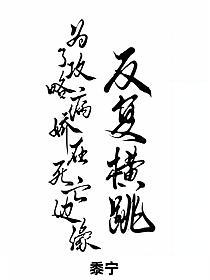 反复横跳
为了攻略病娇在死亡边缘
黍宁